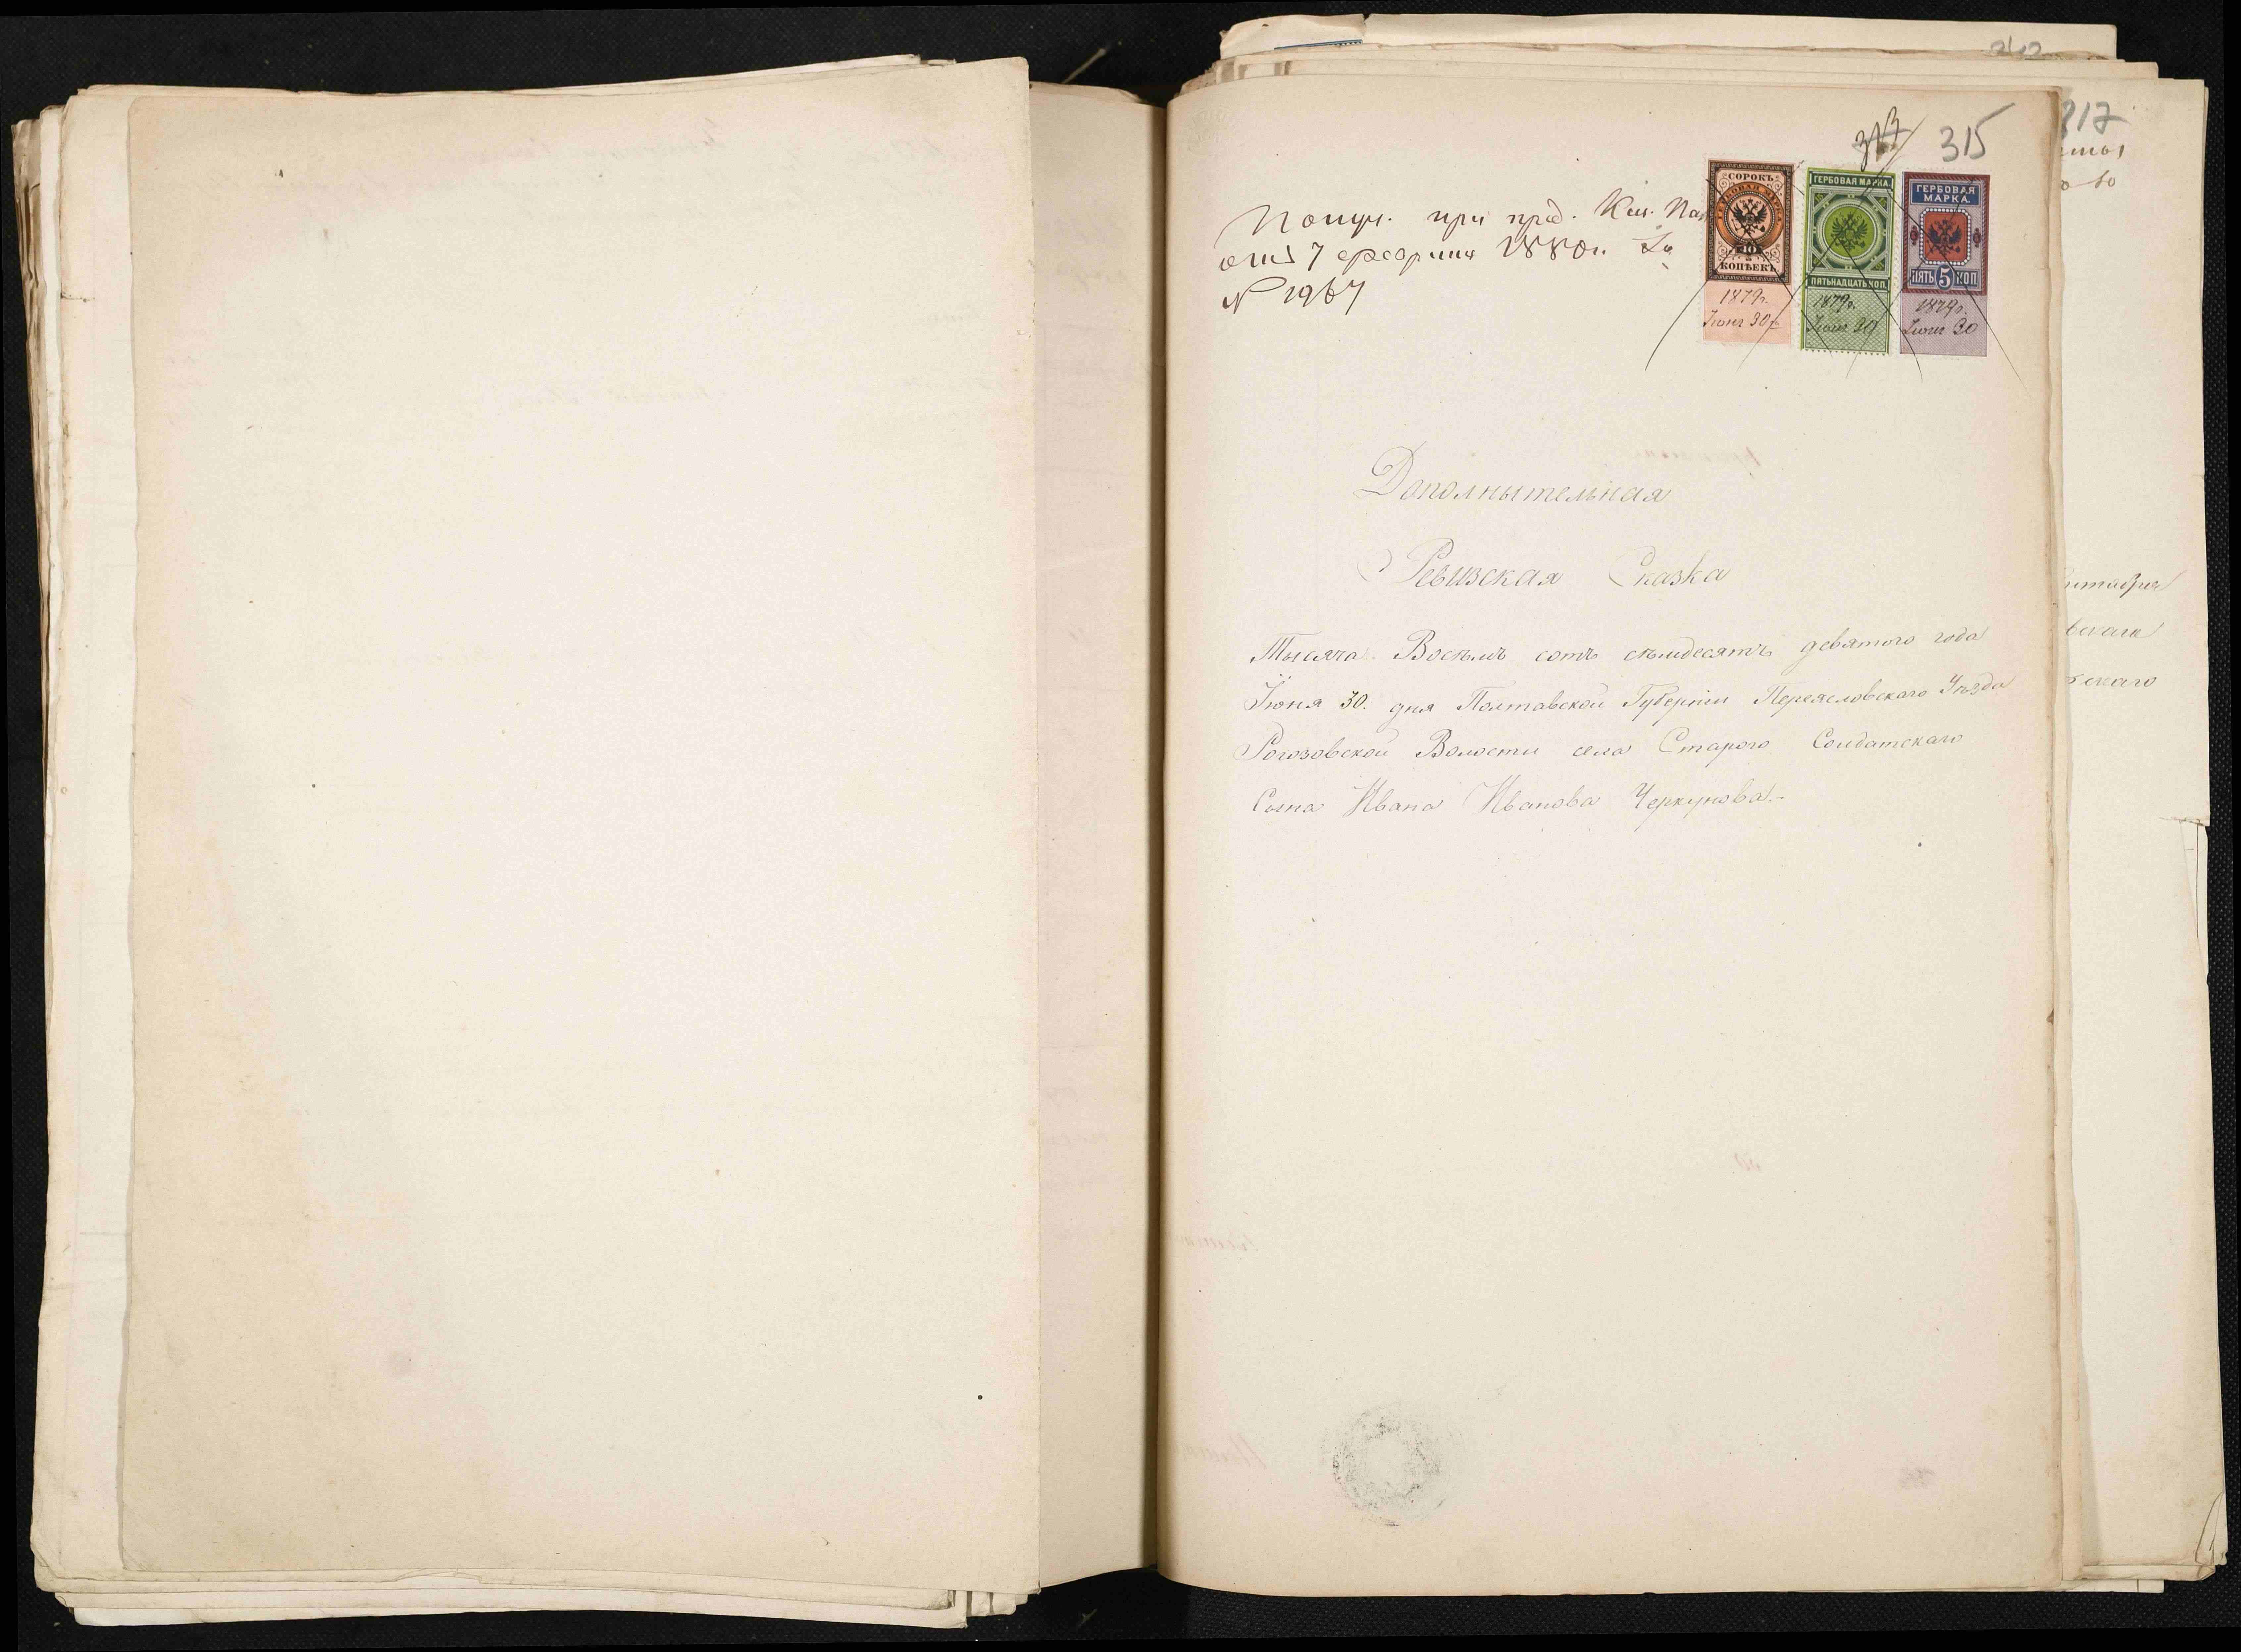 313 315
при пред. Каз. Пал
отъ 7 февраля 1880 г. За
№ 1967
СОРОКЪ
ГЕРБОВАЯ МАРКА
40
КОПѢЕКЪ
1879 г.
Іюня 30
ГЕРБОВАЯ МАРКА.
ПЯТЬНАДЦАТЬ КОП.
1879 г.
Іюня 30
ГЕРБОВАЯ
МАРКА.
ПЯТЬ 5 КОП
1879 г.
Іюня 30
Дополнытельная
Ревизская Сказка
Тысяча Восѣмъ сотъ сѣмдесятъ девятого года
Іюня 30. дня Полтавской Губерніи Переясловскаго Уѣзда
Рогозовской Волости села Старого Солдатскаго
Сына Ивана Иванова Черкунова.
317